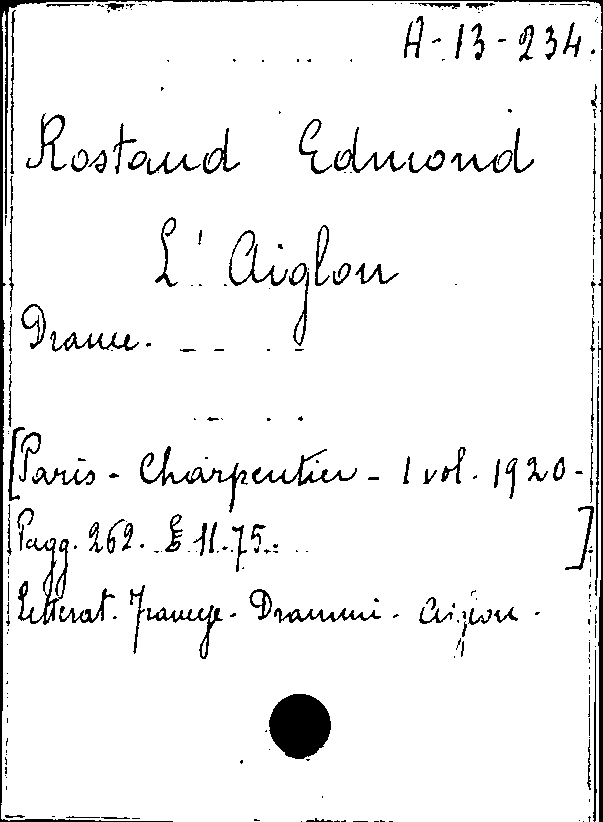 A-13-234.
Rostand Edmond
L' Aiglon
Drame.
[Paris - Charpentier - 1 vol. 1920-
Pagg. 262. £ 11.75. ]
Letterat. Francese - Drammi - Aiglon -